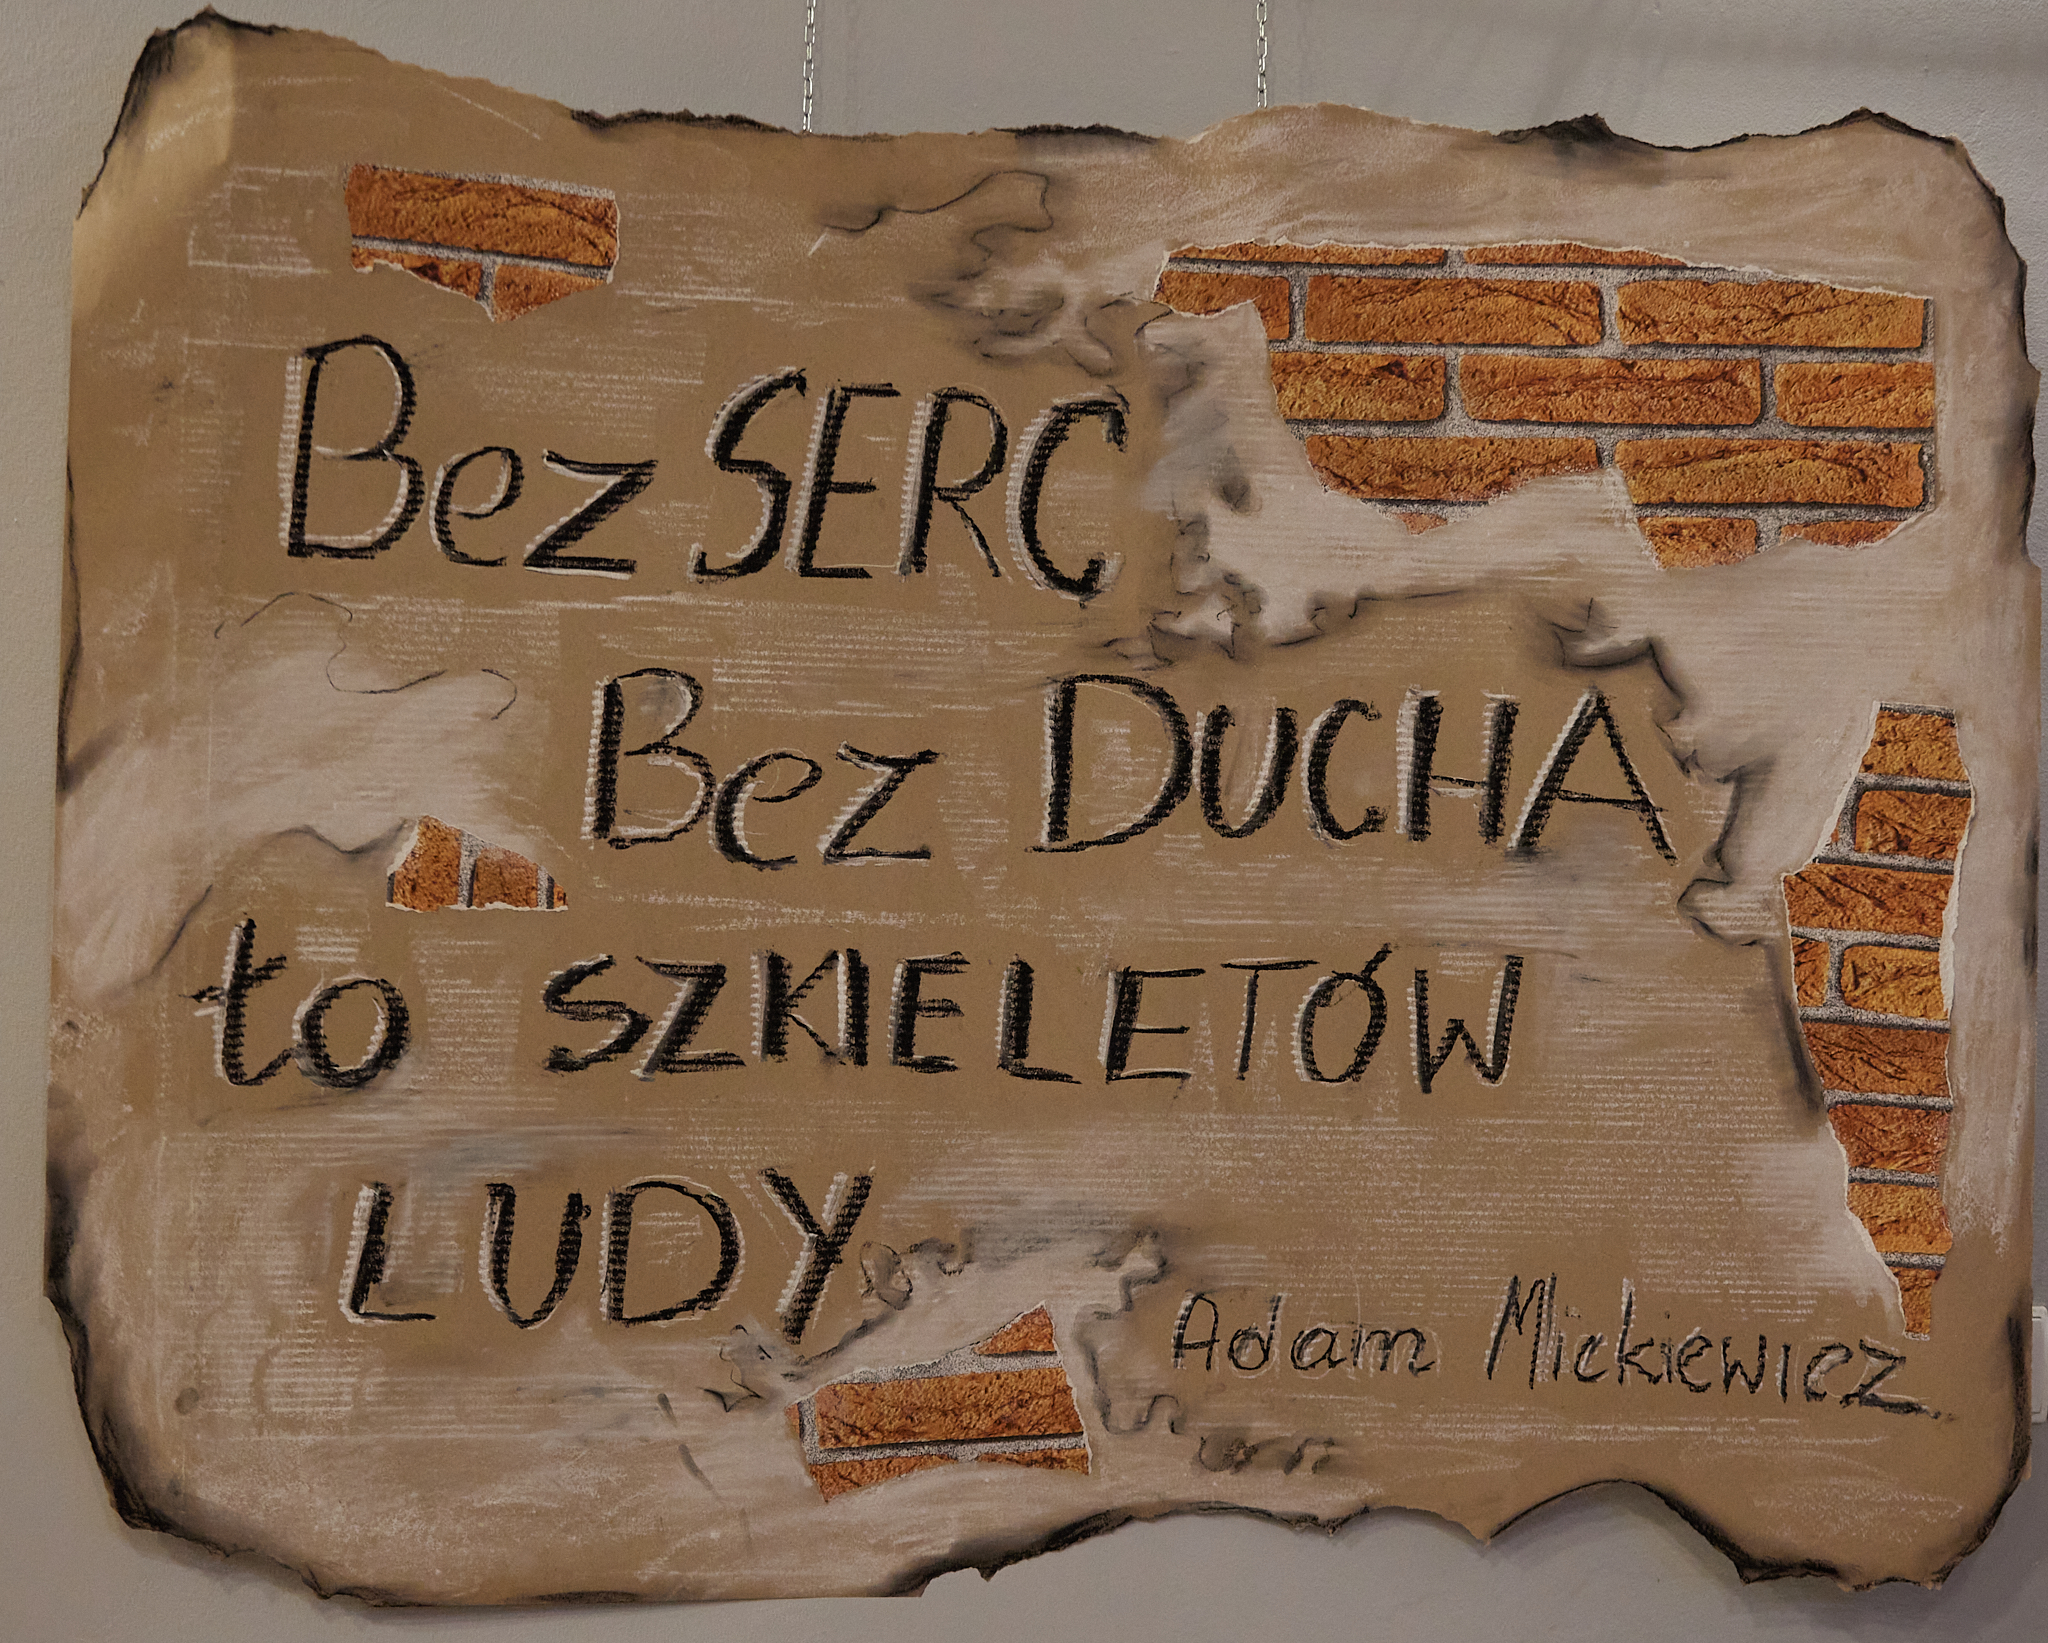 Bez SERC
Bez DUCHA
to SZKIELETÓW
LUDY
Adam Mickiewicz